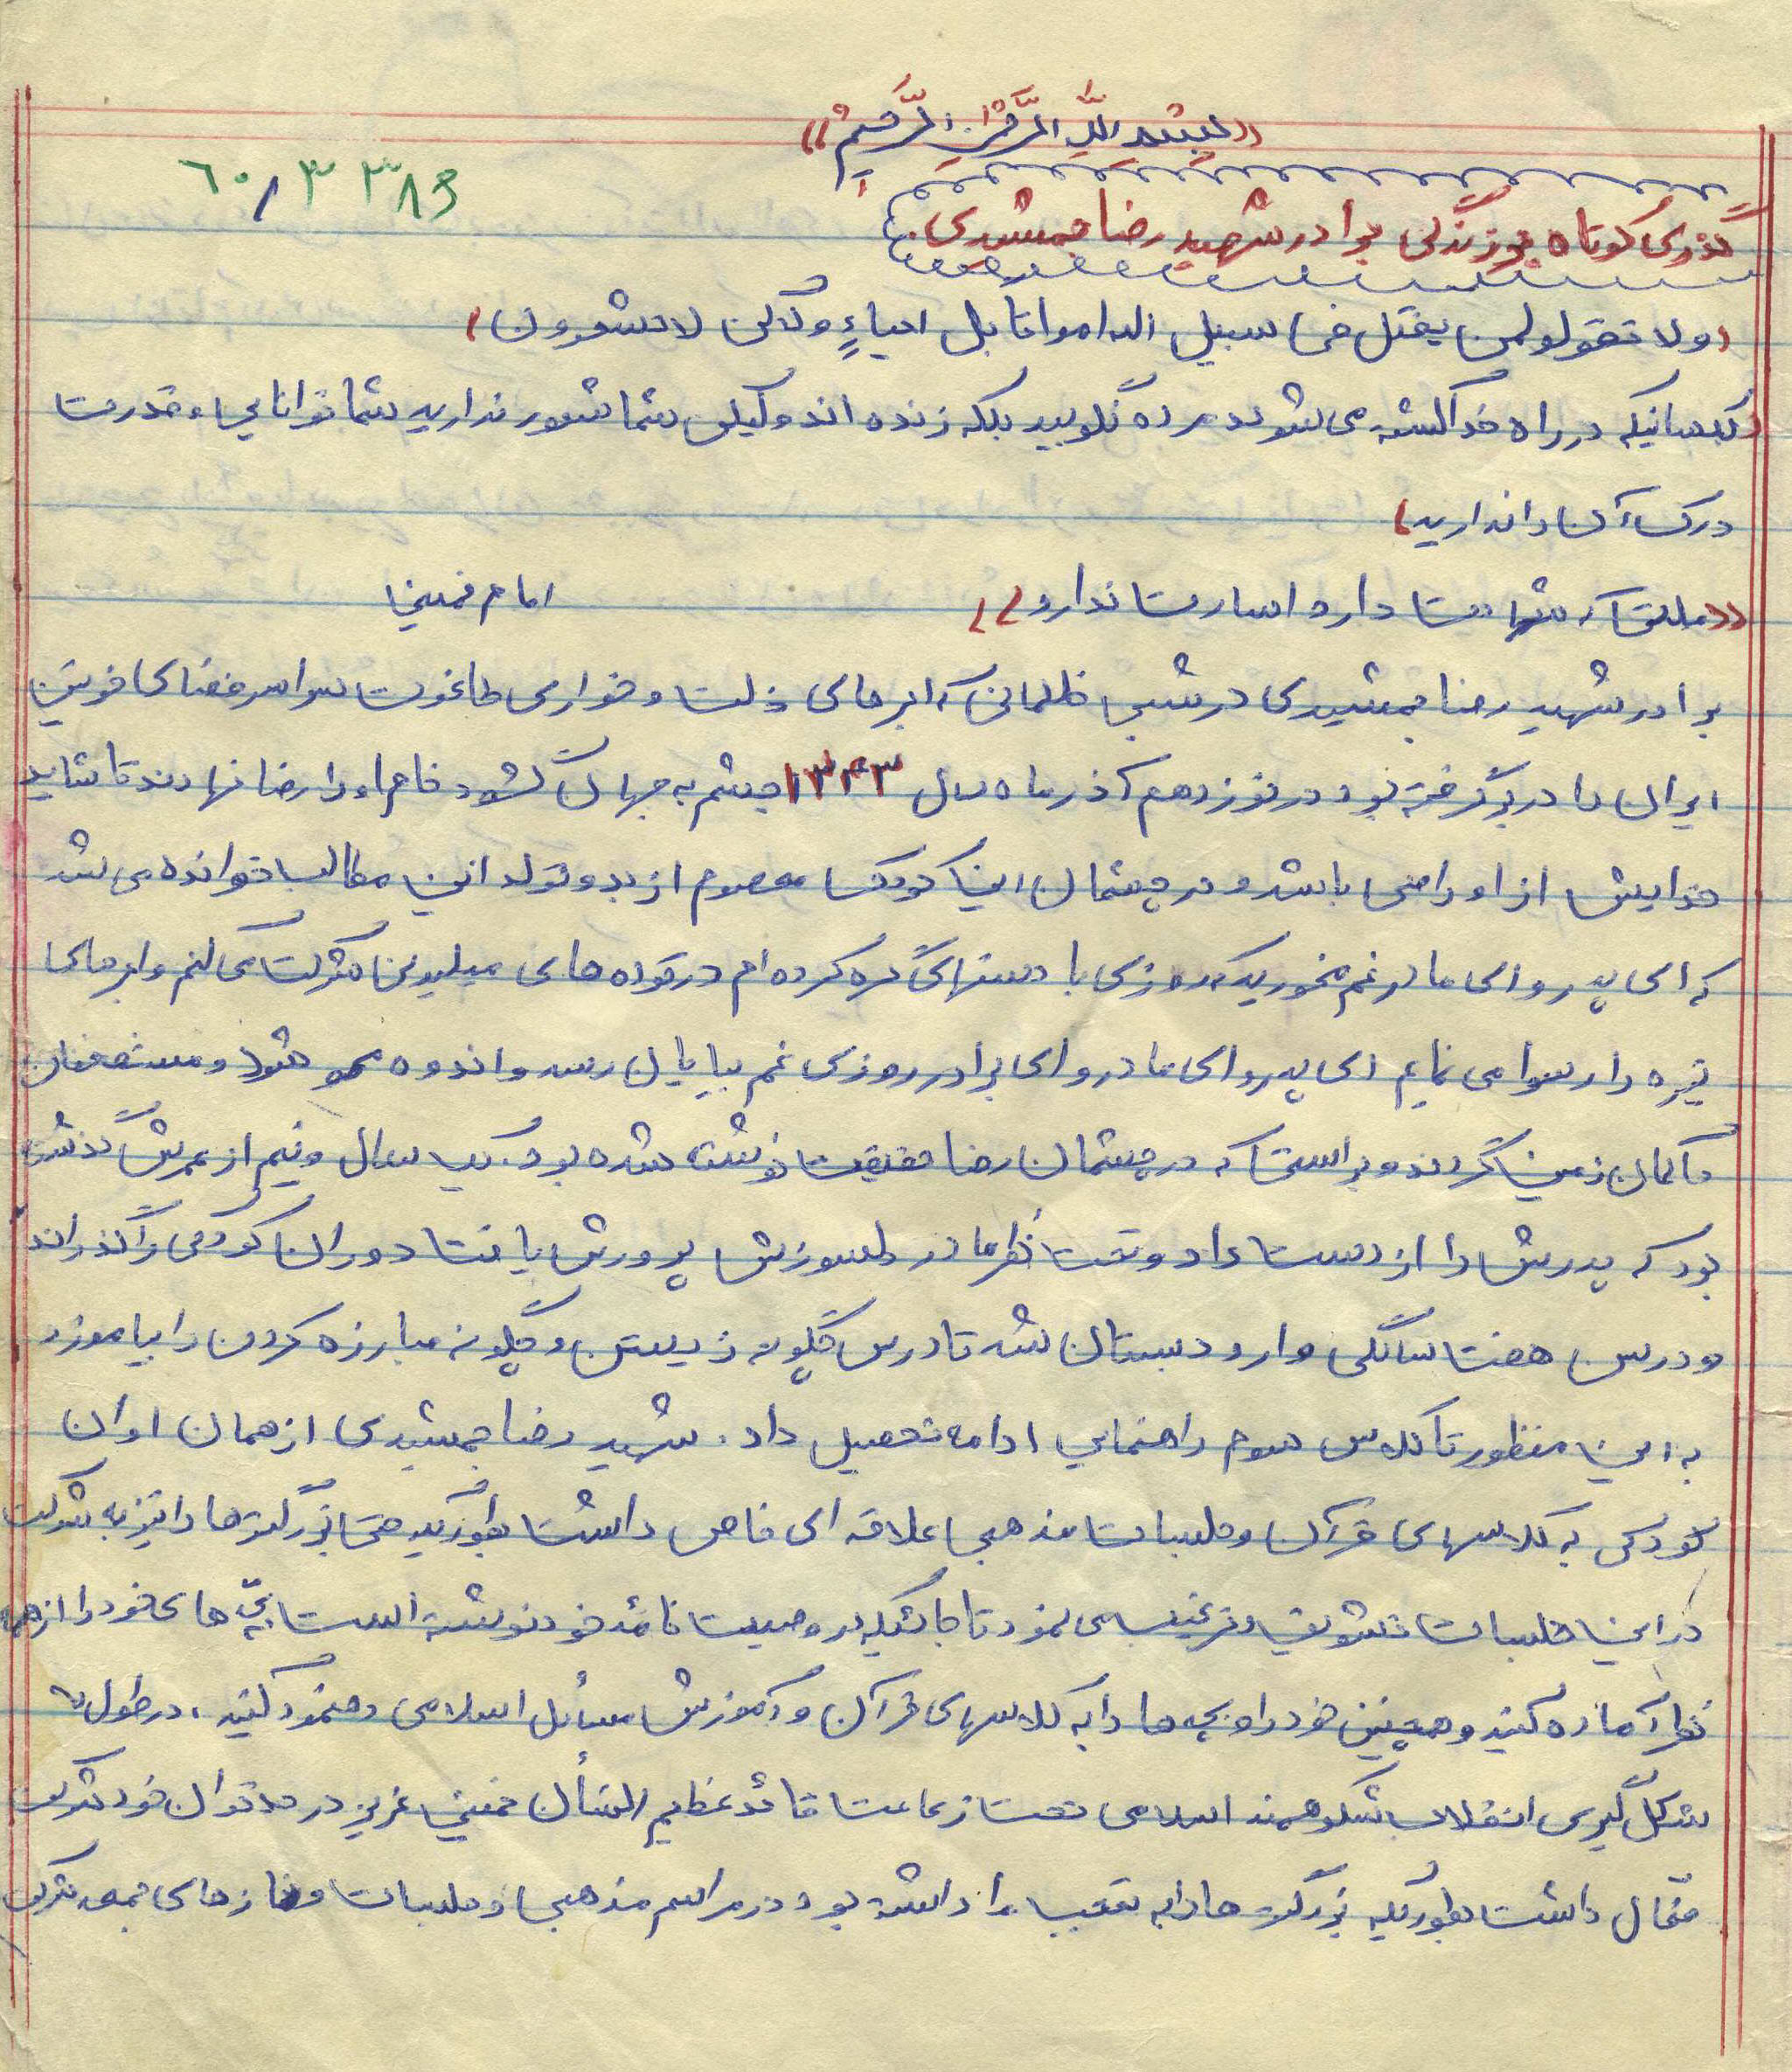 «بِسْمِ اللَّهِ الرَّحْمَنِ الرَّحِیمْ»
۶۰/۳ ۳۸۶
گذری کوتاه بر زندگی برادر شهید رضا جمشیدی.
(ولا تقولو لمن یقتل فی سبیل الله امواتا بل احیاءٍ ولاکن لا تشعرون)
(بکسانیکه در راه خدا کشته می شوند مرده نگویید بلکه زنده اند ولیکن شما شعور ندارید شما توانایی و قدرت
درک آن را ندارید)
«ملتی که شهادت دارد اسارت ندارد» امام خمینی
برادر شهید رضا جمشیدی در شبی ظلمانی که ابرهای ذلت و خواری طاغوت سراسر فضای خونین
ایران را در برگرفته بود در نوزدهم آذر ماه سال ۱۳۴۳ چشم به جهان گشود نام او را رضا نهادند تا شاید
خدایش از او راضی باشد و در چشمان این کودک معصوم از بدو تولد این مطالب خوانده می شد
که ای پدر و ای مادر غم مخورید که روزی با دستهای گره کرده ام در توده های میلیونی شرکت می کنم و ابرهای
تیره را رسوا می نمایم ای پدر و ای مادر و ای برادر روزی غم بپایان رسد و اندوه محو شود و مستضعفان
حاکمان زمین گردند و براستی که در چشمان رضا حقیقت نوشته شده بود. یک سال و نیم از عمرش گذشته
بود که پدرش را از دست داد و تحت نظر مادر دلسوزش پرورش یافت دوران کودکی را گذراند
و در سن هفت سالگی وارد دبستان شد تا درس چگونه زیستن و چگونه مبارزه کردن را بیاموزد
به این منظور تا کلاس سوم راهنمایی ادامه تحصیل داد. شهید رضا جمشیدی از همان اوان
کودکی به کلاسهای قرآن و جلسات مذهبی علاقه ای خاص داشت بطوریکه حتی بزرگترها را نیز به شرکت
در این جلسات تشویق و ترغیب می نمود تا جائیکه در وصیت نامه خود نوشته است بچّه های خود را از همه
نظر آماده کنید و همچنین خود را و بچه ها را به کلاسهای قرآن و آموزش مسائل اسلامی رهنمود کنید. در طول
شکل گیری انقلاب شکوهمند اسلامی تحت زعامت قائد عظیم الشأن خمینی عزیز در حد توان خود شرکت
فعّال داشت بطوریکه بزرگترها را به تعجب وا داشته بود در مراسم مذهبی و جلسات و نمازهای جمعه شرکت